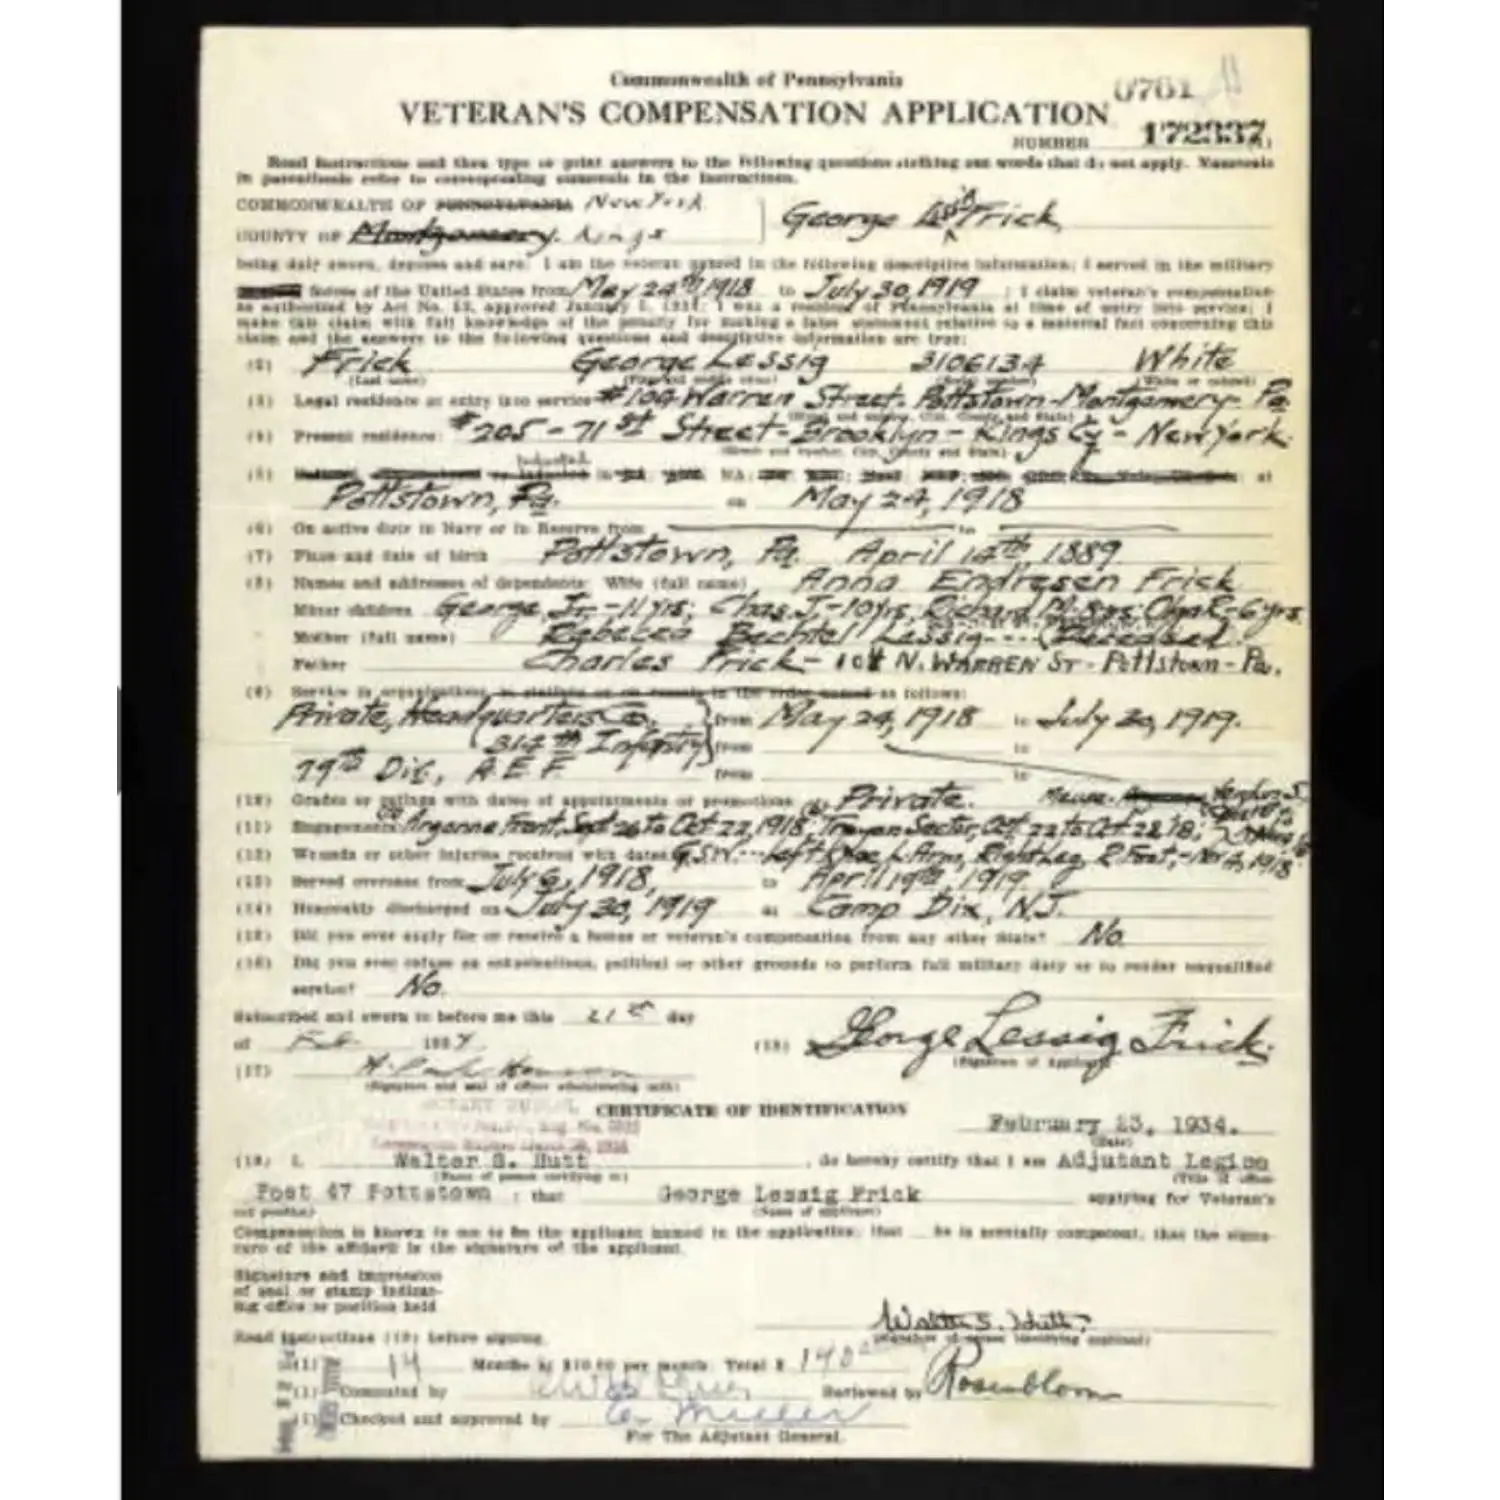 Commonwealth of Pennsylvania
0761
VETERAN'S COMPENSATION APPLICATION
NUMBER 172337
Read instructions and then type or print answers to the following questions striking out words that do not apply. Numerals
in parenthesis refer to corresponding numerals in the instructions.
COMMONWEALTH OF PENNSYLVANIA New York
COUNTY OF Montgomery. Kings
George Lessig Frick
being duly sworn, deposes and says: I am the veteran named in the following descriptive information; I served in the military
forces of the United States from May 24th, 1918 to July 30, 1919; I claim veteran's compensation
as authorized by Act No. 53, approved January 5, 1934; I was a resident of Pennsylvania at time of entry into service; I
make this claim with full knowledge of the penalty for making a false statement relative to a material fact concerning this
claim and the answers to the following questions and descriptive information are true:
(2) Frick George Lessig 3106134 White
(Last name) (First and middle name) (Serial number) (White or colored)
(3) Legal residence at entry into service #104 Warren Street. Pottstown-Montgomery- Pa.
(Street and number, City, County and State)
(4) Present residence: #205-71st Street-Brooklyn-Kings Cy-New York.
(Street and number, City, County and State)
(5) Inducted in NA: at
Pottstown, Pa. on May 24, 1918
(6) On active duty in Navy or in Reserve from to
(7) Place and date of birth Pottstown, Pa. April 14th, 1889
(8) Names and addresses of dependents: Wife (full name) Anna Endresen Frick
Minor children George, Jr.-11yrs; Chas. J.-10yrs, Richard M-8yrs; -6yrs.
Mother (full name) Rebecca Bechtel Lessig---- (Deceased)
Father Charles Frick- 104 N. WARREN ST - Pottstown - Pa.
(9) Service in organizations, in stations or on vessels in the order named as follows:
Private, Headquarters Co. from May 24, 1918 to July 30, 1919.
314th Infantry from to
79th Div., A.E.F. from to
(10) Grades or ratings with dates of appointments or promotions Private. Meuse-
(11) Engagements Argonne Front, Sept 26 to Oct 22, 1918, Troyon Sector, Oct 22 to Oct 28 '18;
(12) Wounds or other injuries received with dates G.S.W.--- Left L. Arm, Right Leg, R. Foot,-Nov 4, 1918
(13) Served overseas from July 6, 1918, to April 19th, 1919.
(14) Honorably discharged on July 30, 1919 at Camp Dix, N.J.
(15) Did you ever apply for or receive a bonus or veteran's compensation from any other State? No.
(16) Did you ever refuse on conscientious, political or other grounds to perform full military duty or to render unqualified
service? No.
Subscribed and sworn to before me this 21st day
of Feb. 1934
(18) George Lessig Frick.
(Signature of Applicant)
(17)
(Signature and seal of officer administering oath)
NOTARY PUBLIC
CERTIFICATE OF IDENTIFICATION
February 23, 1934.
(Date)
(19) I, Walter S. Hutt, do hereby certify that I am Adjutant Legion
(Name of person certifying to) (Title of office
Post 47 Pottstown; that George Lessig Frick applying for Veteran's
or position) (Name of applicant)
Compensation is known to me to be the applicant named in the application; that he is mentally competent, that the signa-
ture of the affidavit is the signature of the applicant.
Signature and impression
of seal or stamp indicat-
ing office or position held
Walter S. Hutt.
(Signature of person identifying applicant)
Read instructions (19) before signing.
14 Months @ $10.00 per month. Total $ 140
Computed by Reviewed by Rosenbloom
Checked and approved by Miller
For The Adjutant General.